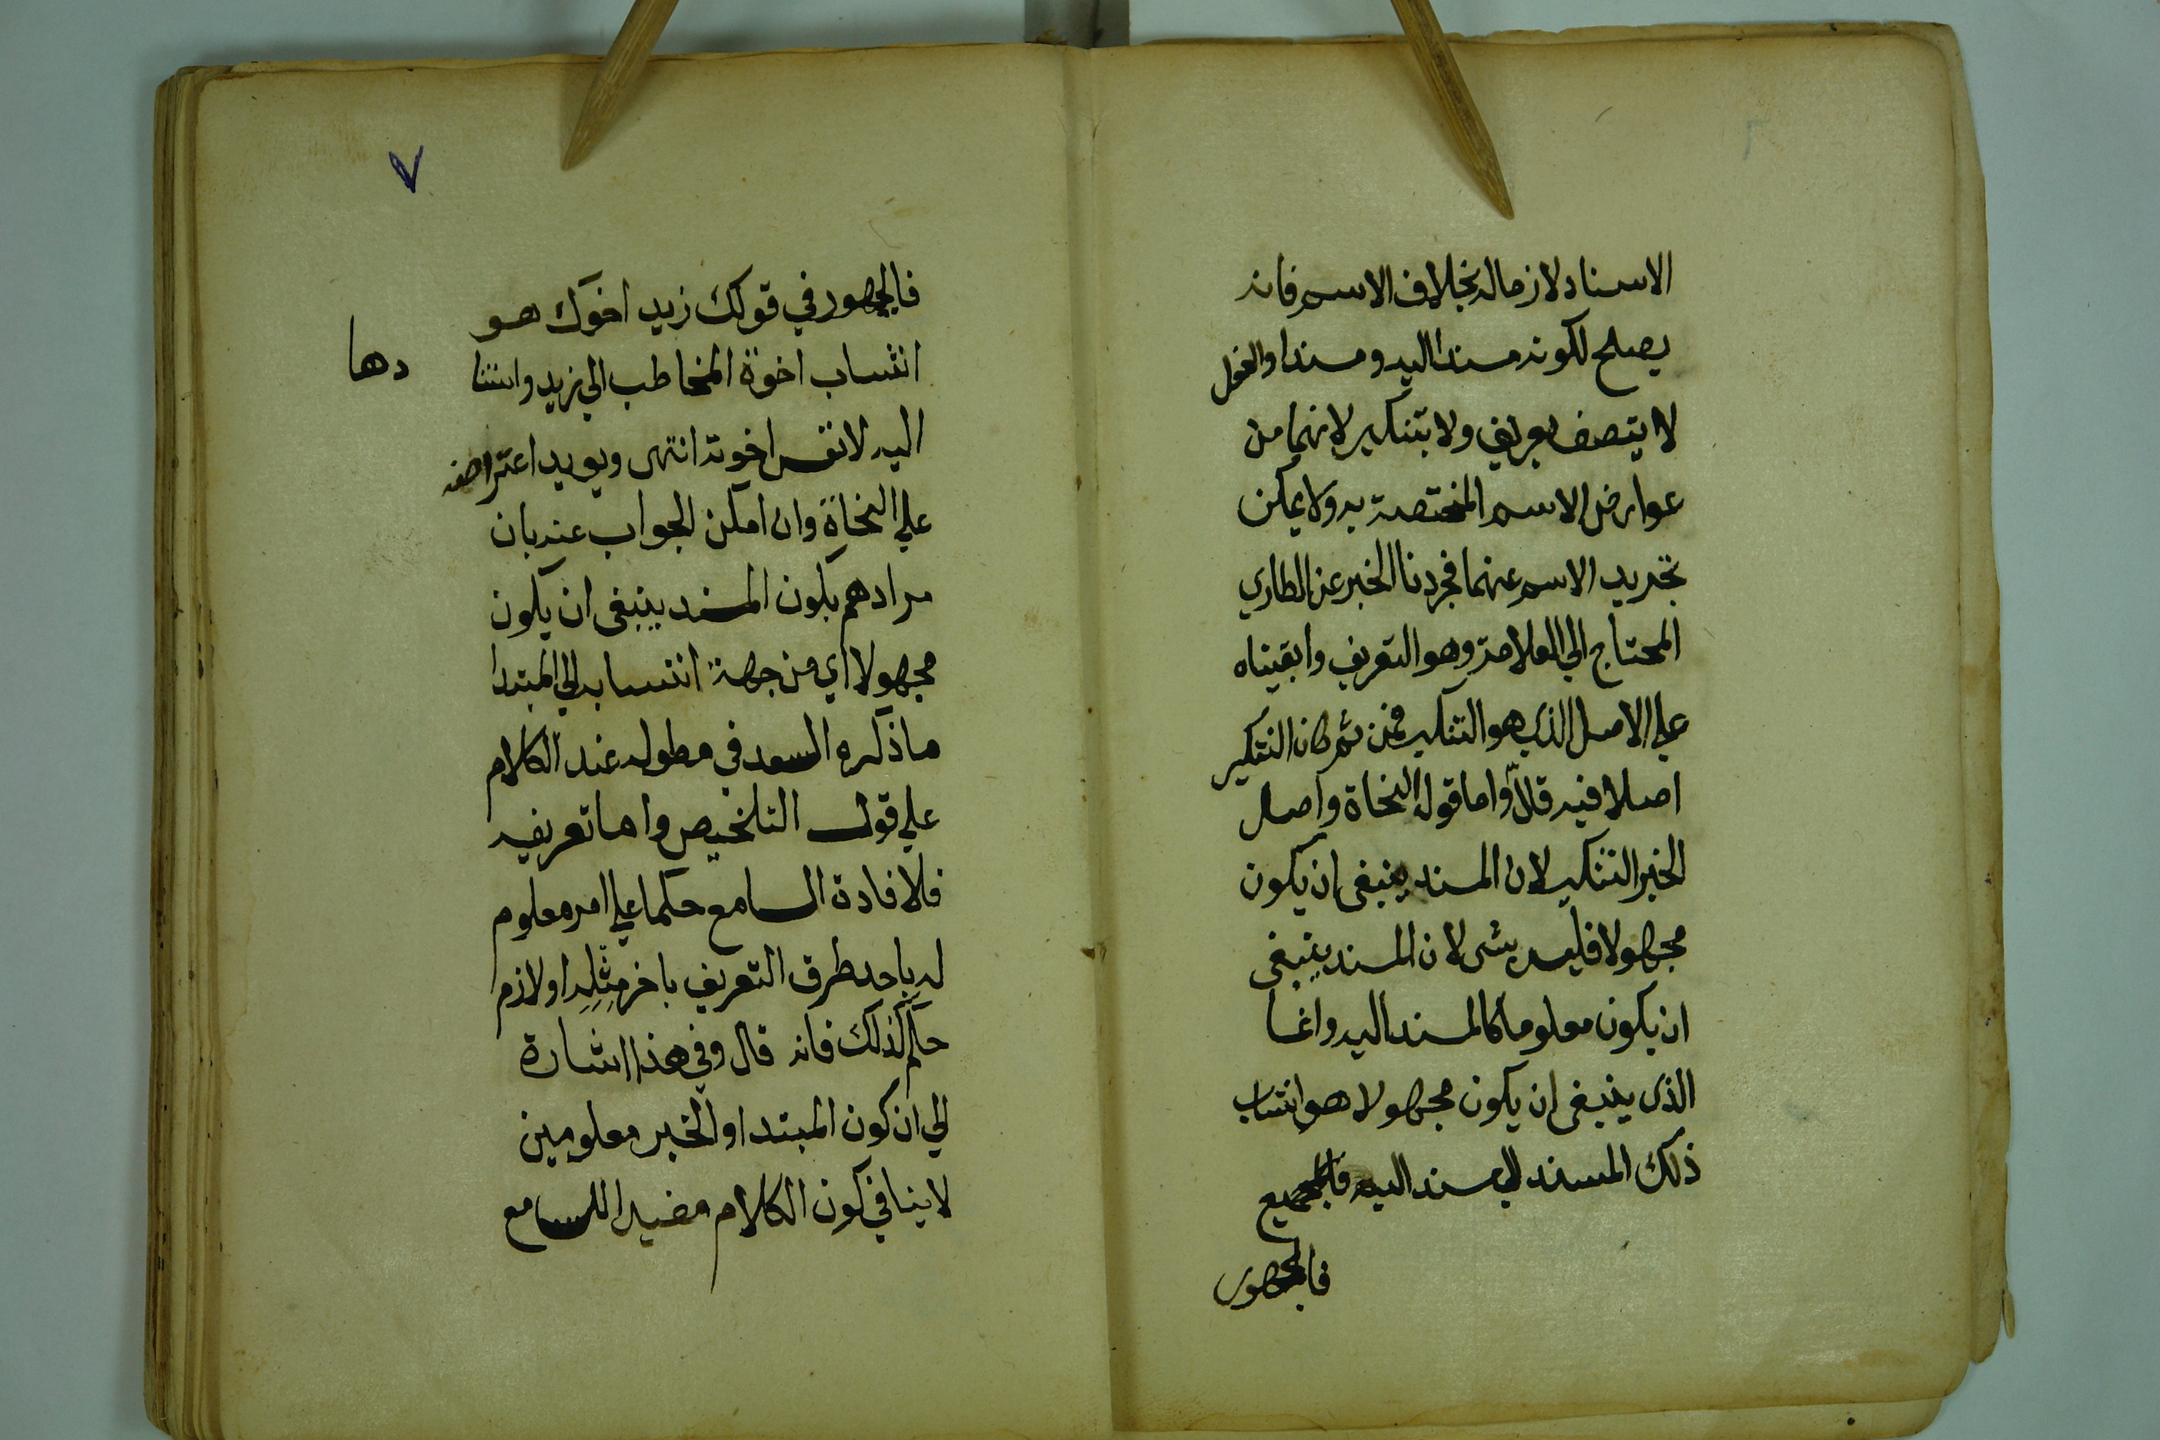 الاسناد لازما له بخلاف الاسم فانه
يصلح لكونه مسندا اليه ومسندا والفعل
لا يتصف بعريف ولا بتنكير لانهما من
عوارض الاسم المختصة به ولا يمكن
تجريد الاسم عنهما فجردنا الخبر عن الطاري
المحتاج الي العلامة وهو التعريف وابقيناه
علي الاصل الذي هو التنكير فمن ثم كان التنكير
اصلا فيه قال واما قول النحاة واصل
الخبر التنكير لان المسند ينبغي ان يكون
مجهولا فليس بشي لان المسند ينبغي
ان يكون معلوما كالمسند اليه وانما
الذي ينبغي ان يكون مجهولا هو انتساب
ذلك المسند الي مسند اليه
فالمجهور
٧
فالمجهور في قولك زيد اخوك هو
انتساب اخوة المخاطب الي زيد واسنا
دها
اليه لا نفس اخوته انتهى ويويد اعتراضه
علي النحاة وان امكن الجواب عنه بان
مرادهم بكون المسند ينبغي ان يكون
مجهولا اي من جهة انتسابه الي المبتدا
ما ذكره السعد في مطوله عند الكلام
علي قول التلخيص واما تعريفه
فلافادة السامع حكما علي امر معلوم
له باحد طرق التعريف باخر مثله او لازم
حكم كذلك فانه قال وفي هذا اشارة
الي ان كون المبتدا والخبر معلومين
لا ينافي كون الكلام مفيدا للسامع